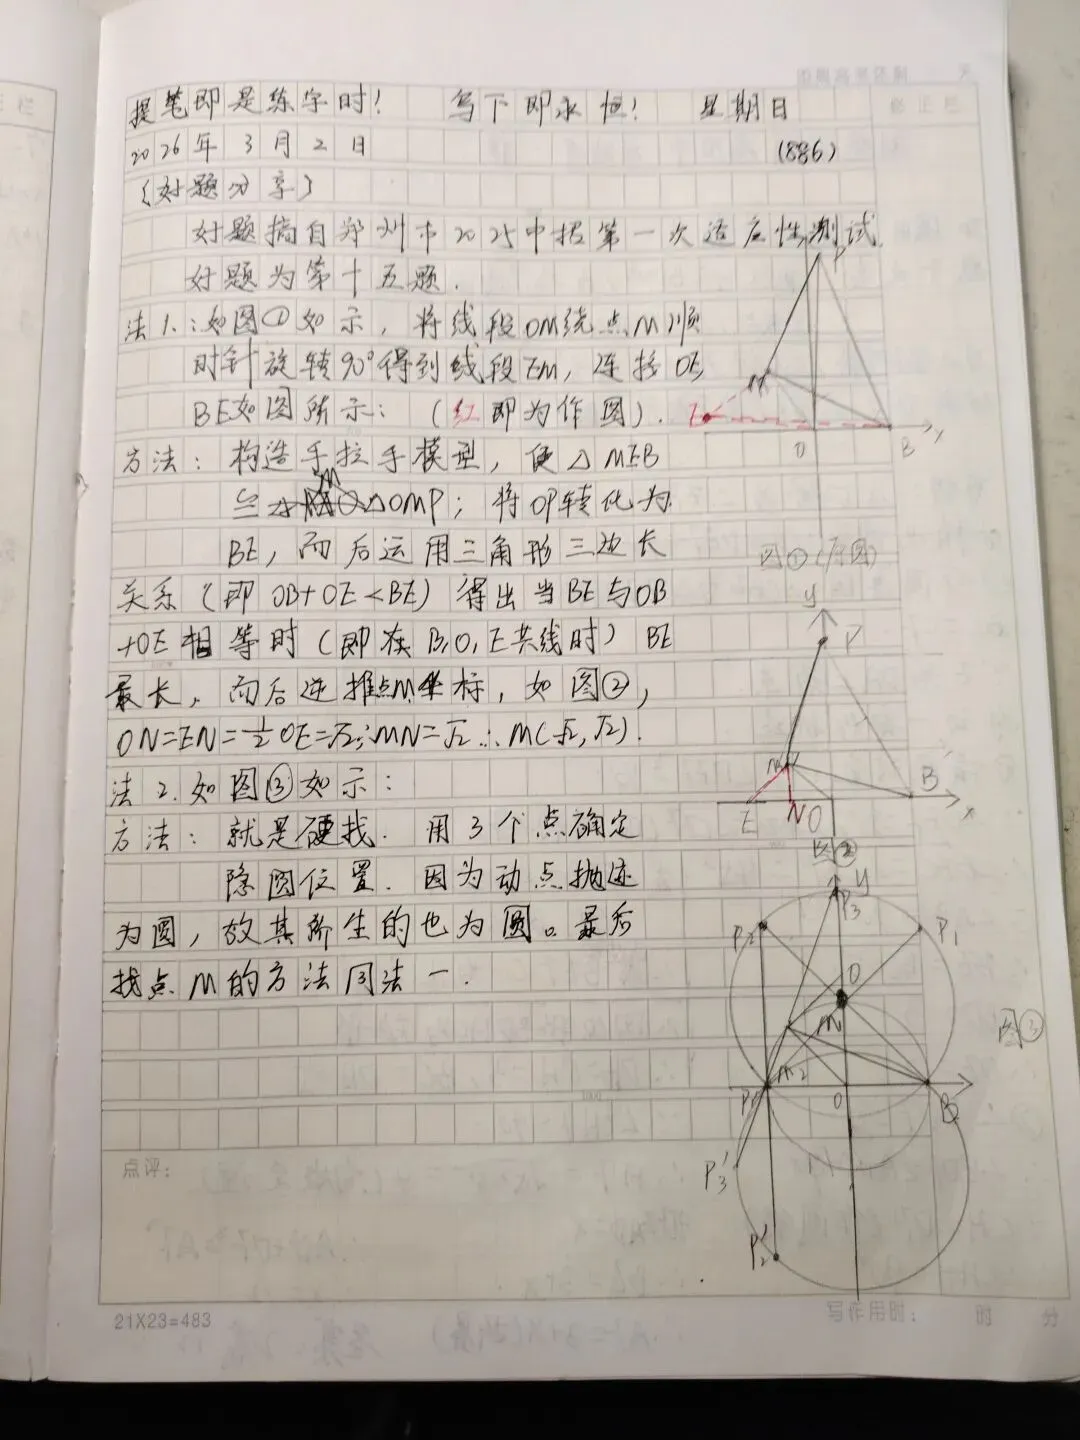 提笔即是练字时! 写下即永恒! 星期日
2026年3月2日 (886)
{好题分享}
好题摘自郑州市2025中招第一次适应性测试
好题为第十五题.
法1.:如图①如示,将线段OM绕点M顺
时针旋转90°得到线段EM,连接OE,
BE如图所示:(红即为作图).
方法:构造手拉手模型,使△MEB
≌△OMP;将OP转化为
BE,而后运用三角形三边长
关系(即OB+OE<BE)得出当BE与OB
+OE相等时(即在B,O,E共线时)BE
最长,而后逆推点M坐标,如图②,
ON=EN=½OE=√2;MN=√2∴M(-√2,√2).
法2.如图③如示:
方法:就是硬找.用3个点确定
隐圆位置.因为动点抛迹
为圆,故其所生的也为圆。最后
找点M的方法同法一.
P
M
E
O
B
x
图①(原图)
y
P
M
B
E
N
O
x
图②
y
P3
P2
P1
O
M
图③
M2
P
O
B
P3′
P2′
点评:
21X23=483
写作用时: 时 分